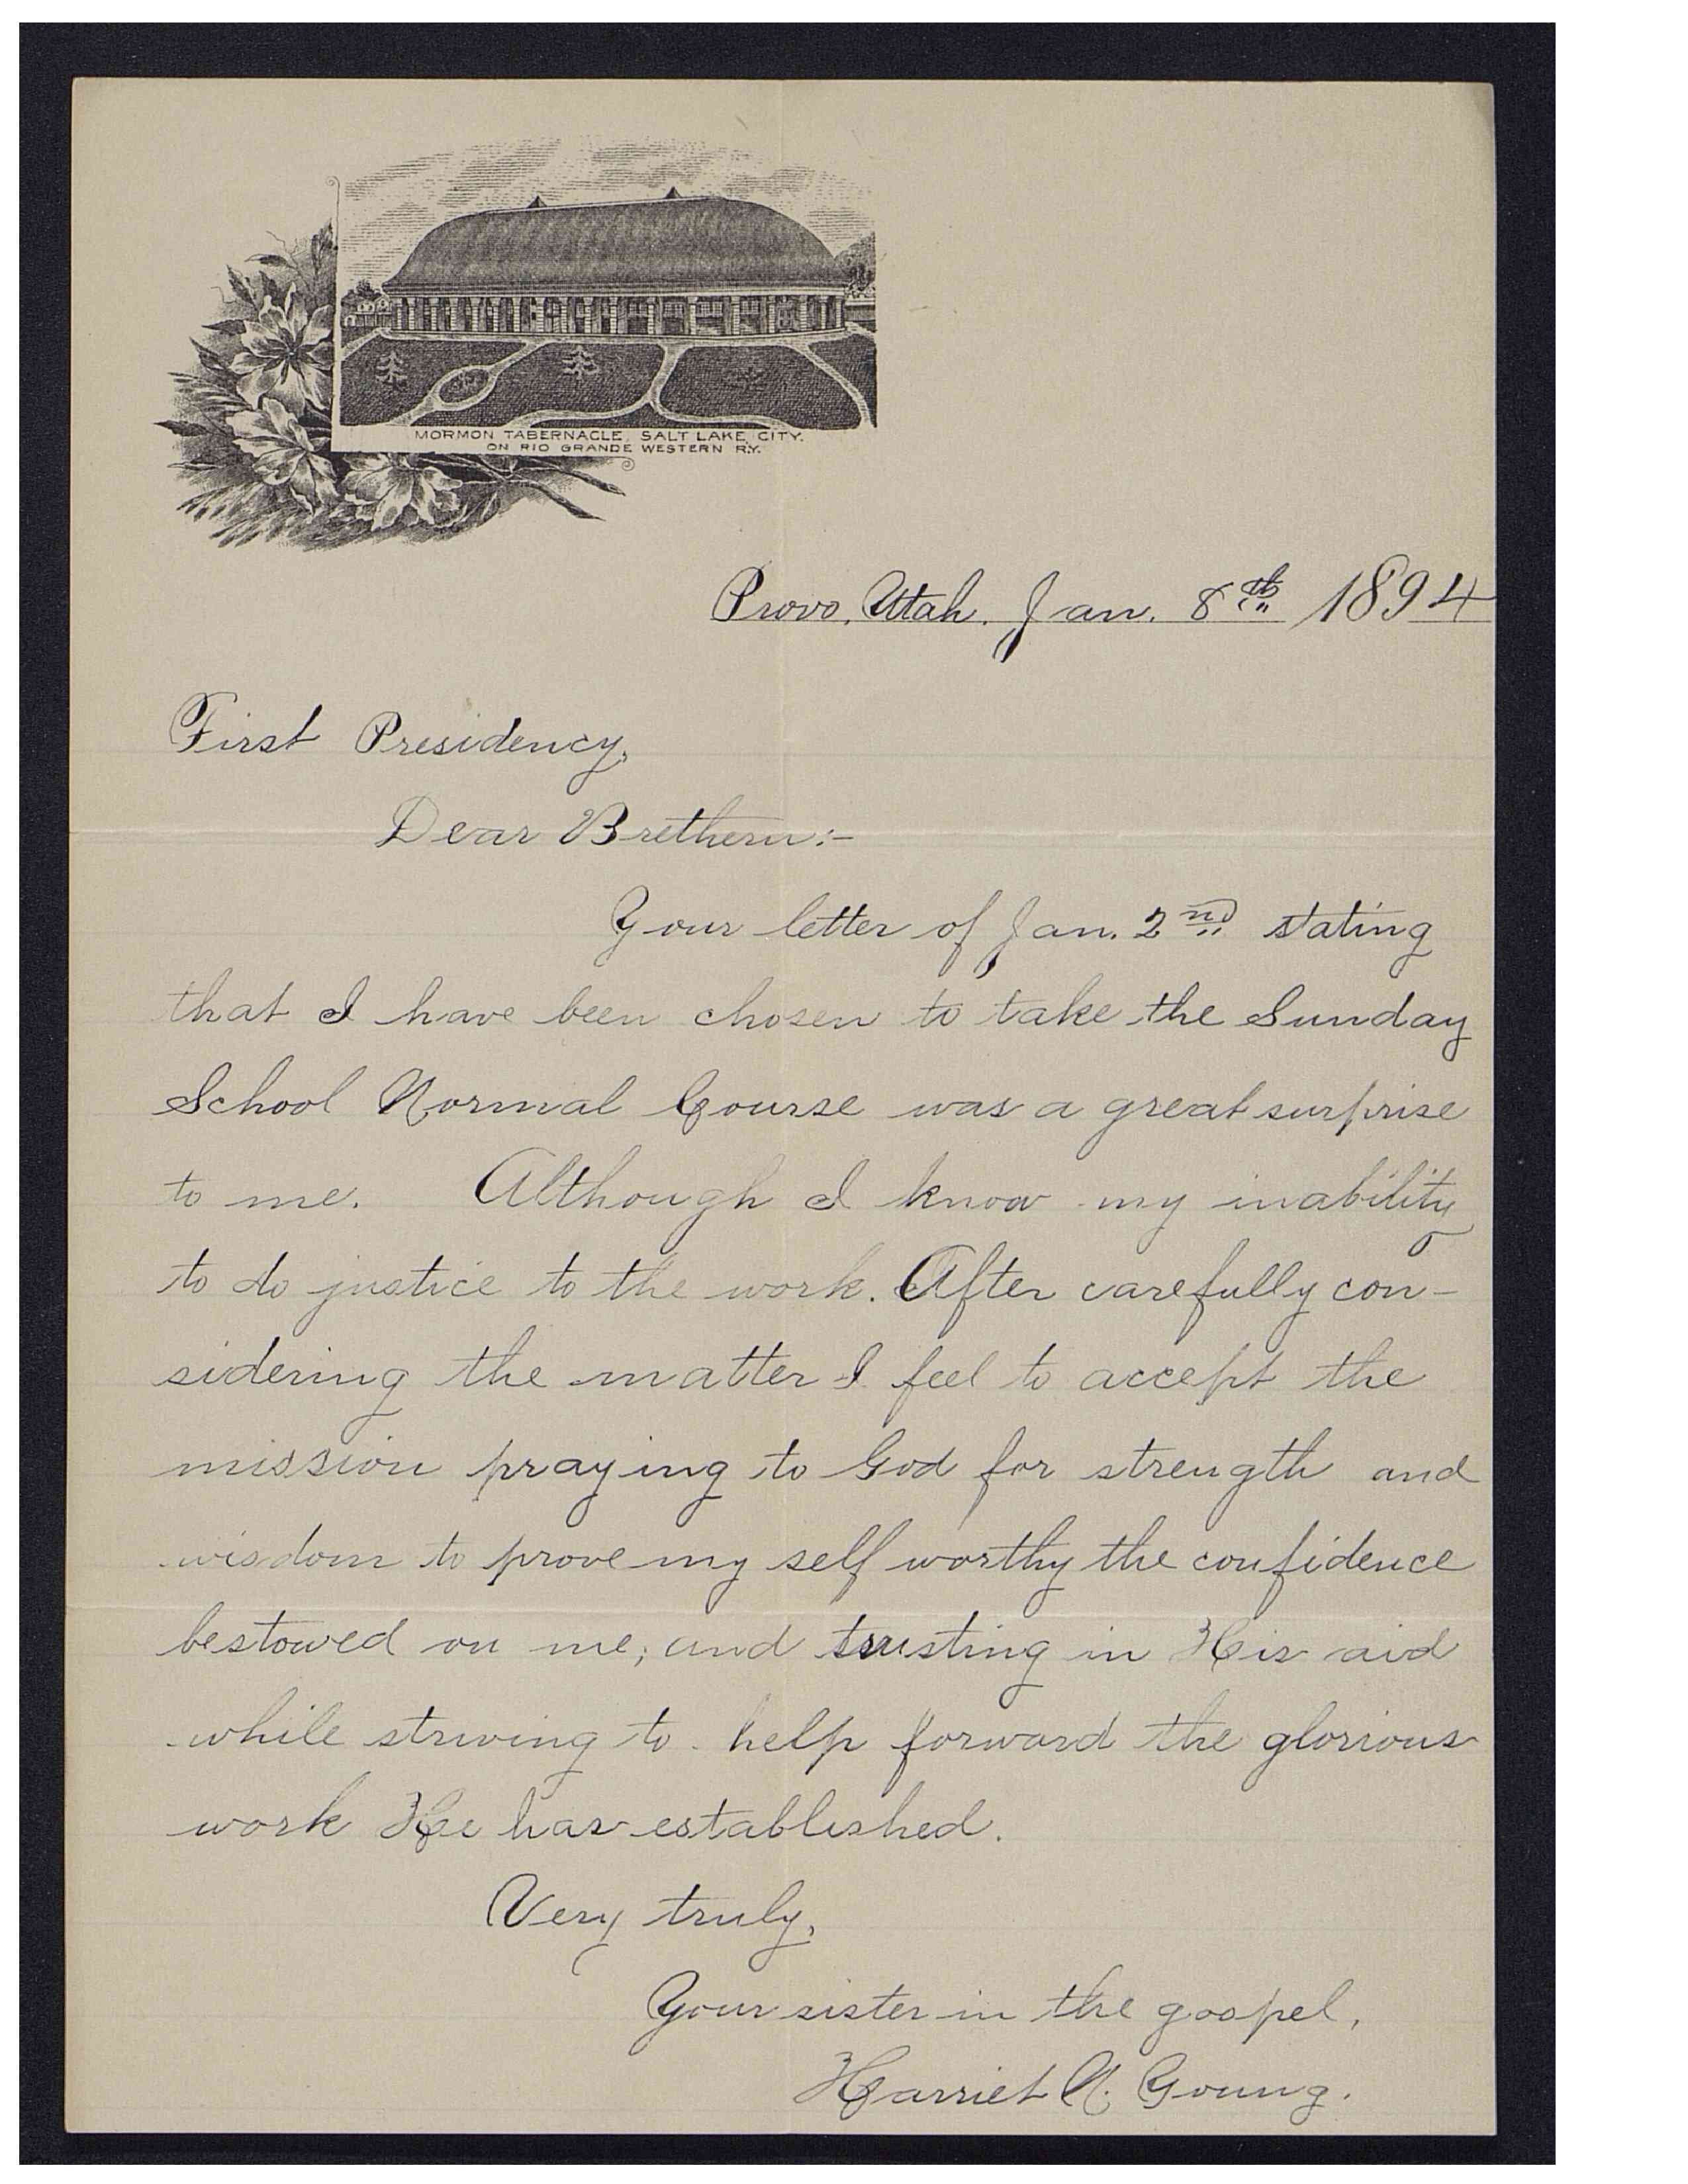 MORMON TABERNACLE, SALT LAKE CITY.
ON RIO GRANDE WESTERN R.Y.
Provo, Utah. Jan. 8th 1894
First Presidency,
Dear Brethern:-
Your letter of Jan. 2nd stating
that I have been chosen to take the Sunday
School Normal Course was a great surprise
to me. Although I know my inability
to do justice to the work. After carefully con-
sidering the matter I feel to accept the
mission praying to God for strength and
wisdom to prove my self worthy the confidence
bestowed on me; and trusting in His aid
while striving to help forward the glorious
work He has established.
Very truly,
Your sister in the gospel,
Harriet N. Young.